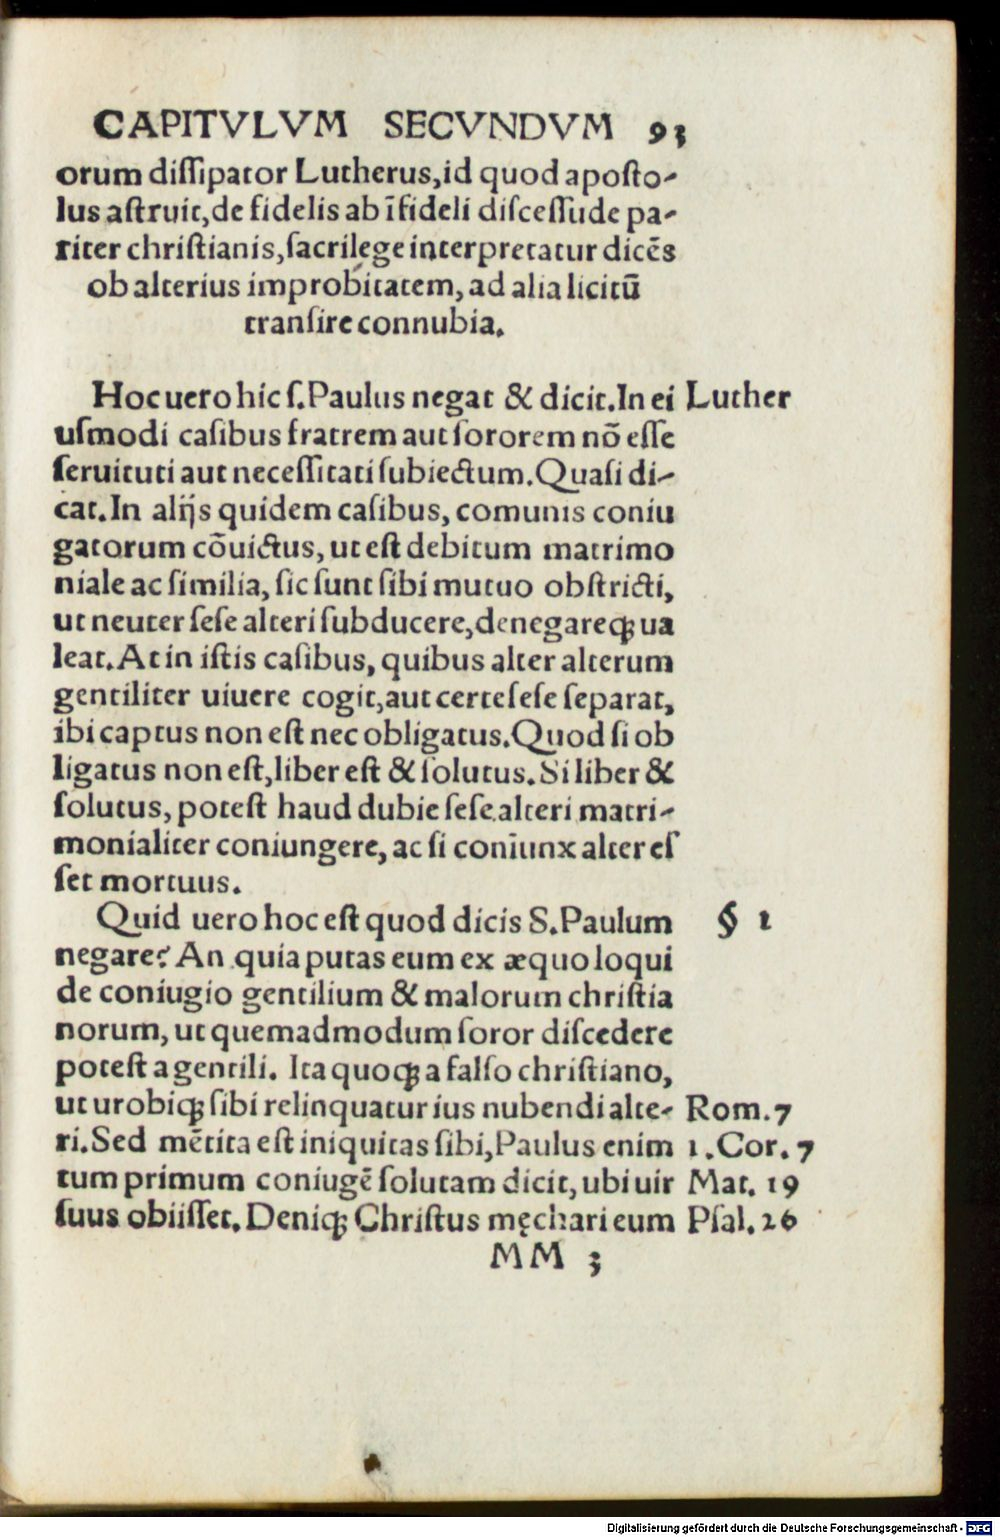 CAPITVLVM SECVNDVM 93
orum diſſipator Lutherus, id quod apoſto-
lus aſtruit, de fidelis ab īfideli diſceſſu de pa-
riter chriſtianis, ſacrilege interpretatur dicēs
ob alterius improbitatem, ad alia licitū
tranſire connubia.
Hoc uero hic ſ. Paulus negat & dicit. In ei Luther
uſmodi caſibus fratrem aut ſororem nō eſſe
ſeruituti aut neceſſitati ſubiectum. Quaſi di-
cat. In alijs quidem caſibus, comunis coniu
gatorum cōuictus, ut eſt debitum matrimo
niale ac ſimilia, ſic ſunt ſibi mutuo obſtricti,
ut neuter ſeſe alteri ſubducere, denegareqꝫ ua
leat. At in iſtis caſibus, quibus alter alterum
gentiliter uiuere cogit, aut certe ſeſe ſeparat,
ibi captus non eſt nec obligatus. Quod ſi ob
ligatus non eſt, liber eſt & ſolutus. Si liber &
ſolutus, poteſt haud dubie ſeſe alteri matri-
monialiter coniungere, ac ſi coniunx alter eſ
ſet mortuus.
Quid uero hoc eſt quod dicis S. Paulum § 1
negare? An quia putas eum ex æquo loqui
de coniugio gentilium & malorum chriſtia
norum, ut quemadmodum ſoror diſcedere
poteſt a gentili. Ita quoqꝫ a falſo chriſtiano,
ut utrobiqꝫ ſibi relinquatur ius nubendi alte- Rom. 7
ri. Sed mētita eſt iniquitas ſibi, Paulus enim 1. Cor. 7
tum primum coniugē ſolutam dicit, ubi uir Mat. 19
ſuus obiiſſet. Deniqꝫ Chriſtus męchari eum Pſal. 26
MM 3
Digitalisierung gefördert durch die Deutsche Forschungsgemeinschaft - DFG